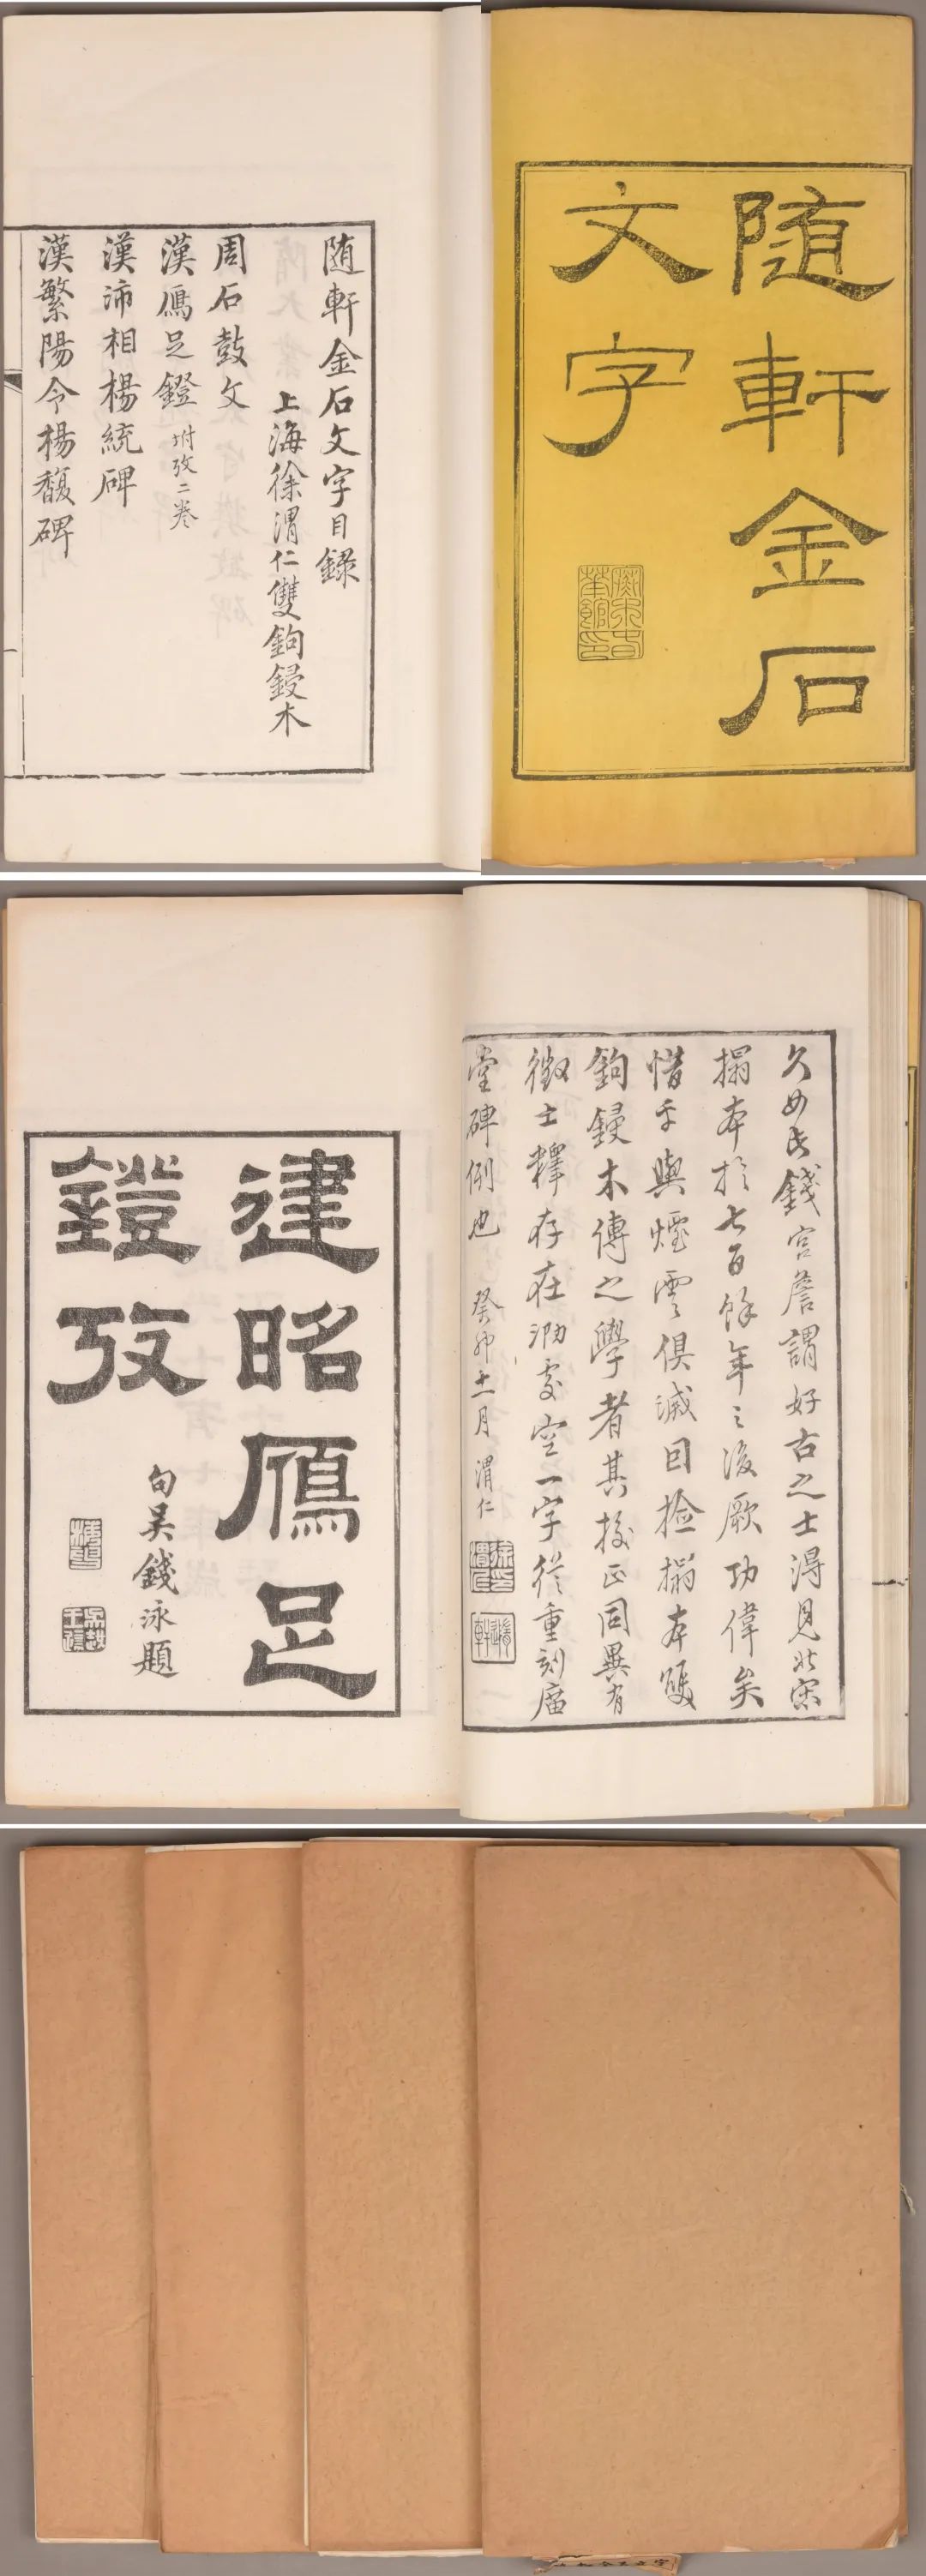 随軒金石
文字
随軒金石文字目錄
上海徐渭仁雙鉤鋟木
周石鼓文
漢鴈足鐙坿攷二卷
漢沛相楊統碑
漢繁陽令楊馥碑
久如氏錢宮詹謂好古之士得見北宋
搨本於七百餘年之後厥功偉矣
惜乎與煙雲俱滅因撿搨本雙
鉤鋟木傳之學者其挍正同異有
徵士釋存在泐處空一字從重刻廣
堂碑例也 癸卯十一月 渭仁
徐渭仁印
隨軒
建昭鴈足
鐙攷
句吳錢泳題